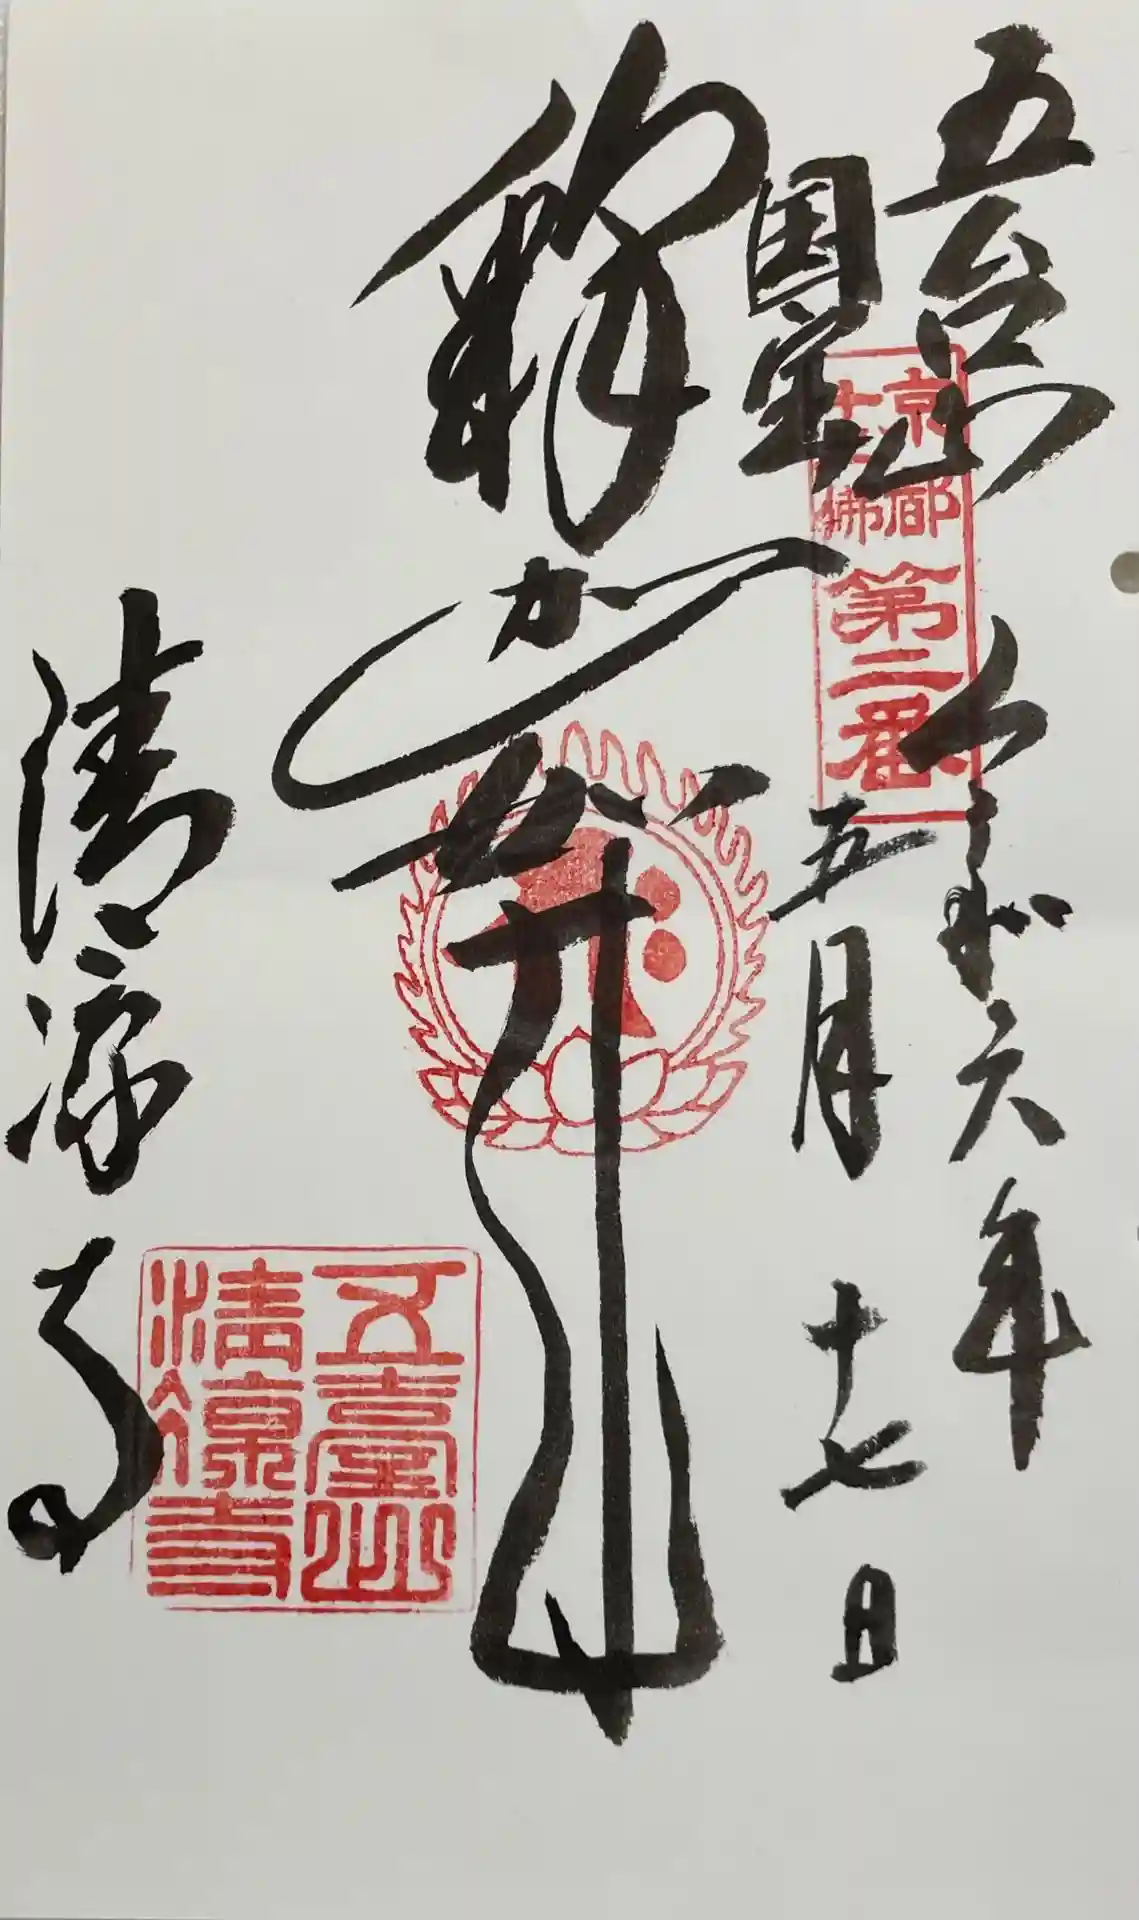 五台山
令和六年
国宝
五月十七日
京都
十三佛
第二番
釈迦如来
清凉寺
五臺山
清凉寺